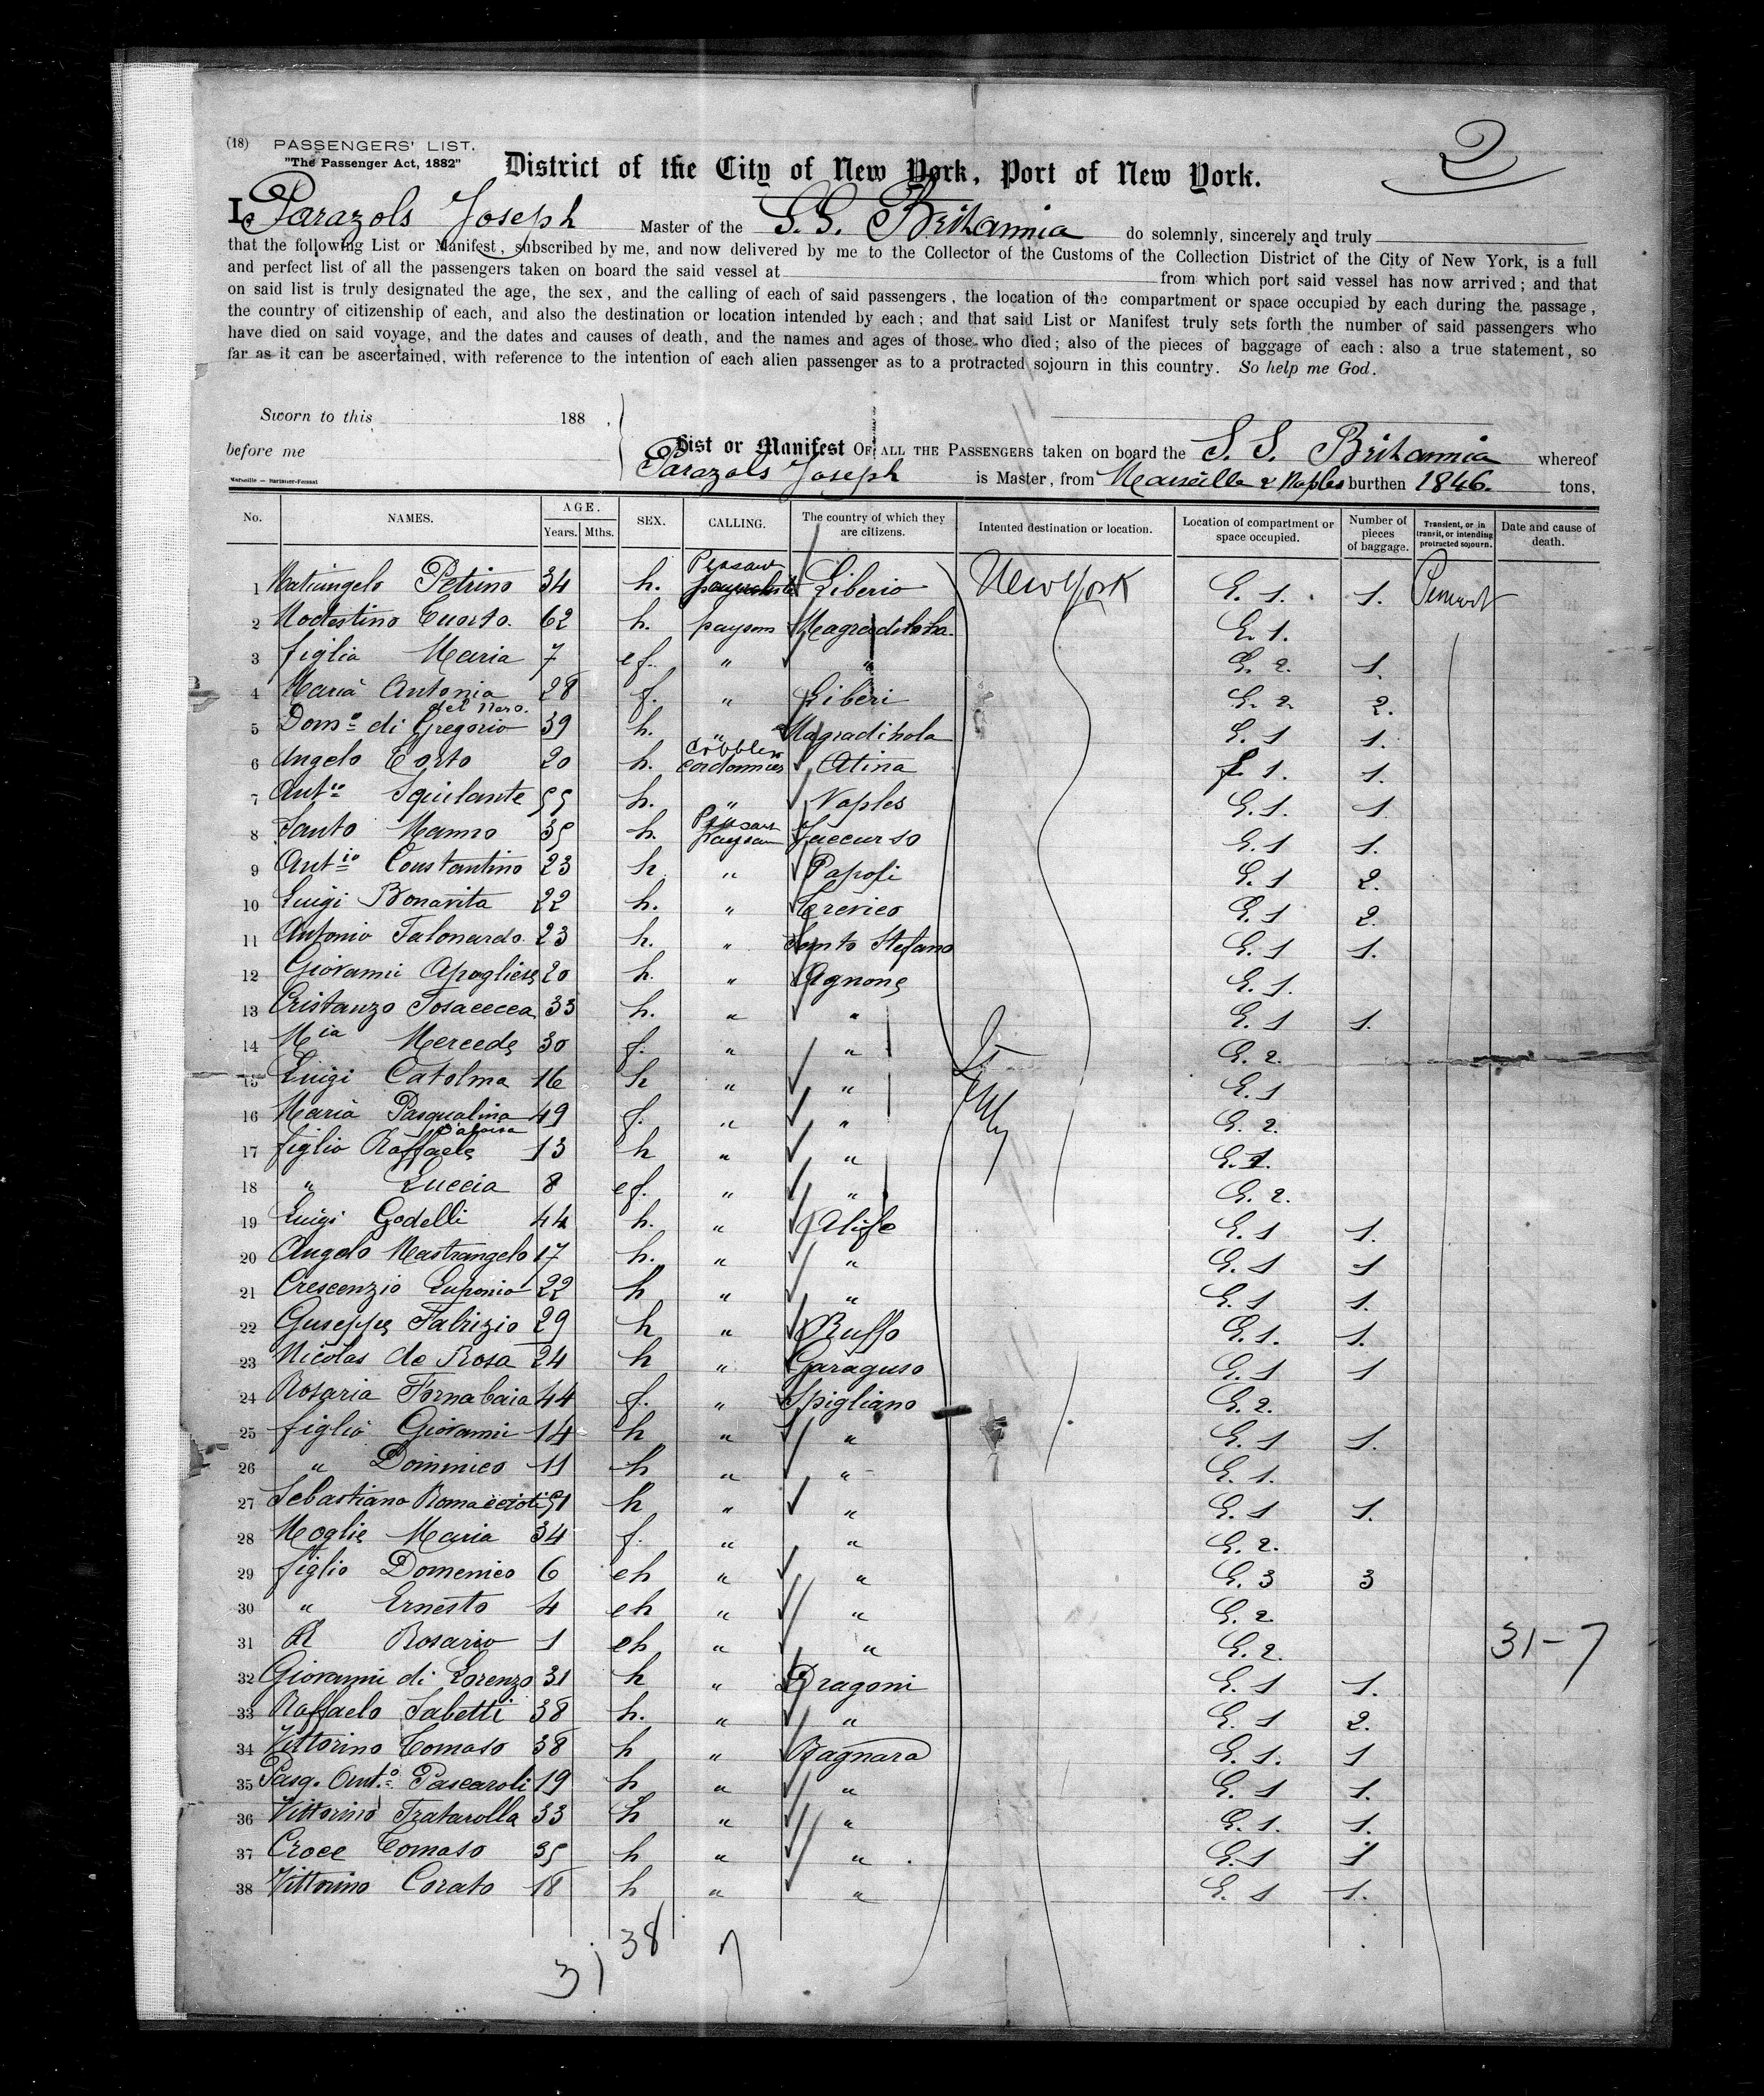 (18) PASSENGERS' LIST.
"The Passenger Act, 1882"
2
District of the City of New York, Port of New York.
I, Parazols Joseph Master of the S.S. Britannia do solemnly, sincerely and truly
that the following List or Manifest, subscribed by me, and now delivered by me to the Collector of the Customs of the Collection District of the City of New York, is a full
and perfect list of all the passengers taken on board the said vessel at from which port said vessel has now arrived; and that
on said list is truly designated the age, the sex, and the calling of each of said passengers, the location of the compartment or space occupied by each during the passage,
the country of citizenship of each, and also the destination or location intended by each; and that said List or Manifest truly sets forth the number of said passengers who
have died on said voyage, and the dates and causes of death, and the names and ages of those who died; also of the pieces of baggage of each: also a true statement, so
far as it can be ascertained, with reference to the intention of each alien passenger as to a protracted sojourn in this country. So help me God.
Sworn to this 188 ,
before me
List or Manifest OF ALL THE PASSENGERS taken on board the S. S. Britannia whereof
Parazols Joseph is Master, from Marseille & Naples burthen 1846. tons,
No. NAMES. AGE. Years. Mths. SEX. CALLING. The country of which they are citizens. Intented destination or location. Location of compartment or space occupied. Number of pieces of baggage. Transient, or in transit, or intending protracted sojourn. Date and cause of death.
1 Petrino 34 h. Liberio New York E. 1. 1.
2 Modestino Cuorto. 62 h. paysan E. 1.
3 figlia Maria 7 ef. " " E. 2. 1.
4 Maria Antonia del Nero. 28 f. " Liberi E. 2. 2.
5 Dom.o di Gregorio 39 h. " E. 1 1.
6 Angelo Corto 20 h. Cobbler cordonnier Atina 1. 1.
7 Ant.io Squilante 55 h. " Naples E. 1. 1
8 Santo Manno 35 h. paysan E. 1 1.
9 Ant.io Constantino 23 h " E. 1 2.
10 Luigi Bonavita 22 h. " Trevico E. 1 2.
11 Antonio Falonardo. 23 h. " Santo Stefano E. 1 1.
12 Giovanni Apogliese 20 h. " Agnone E. 1.
13 Cristanzo 33 h. " " E. 1 1.
14 M.ia Mercede 30 f. " " E. 2.
15 Luigi Catolma 16 h " " E. 1
16 Maria Pasqualina 49 f. " " E. 2.
17 figlio Raffaele 13 h " " E. 1.
18 " Luccia 8 ef. " " E. 2.
19 Luigi Godelli 44 h. " Alife E. 1 1.
20 Angelo Mastrangelo 17 h. " " E. 1 1
21 Crescenzio Euponio 22 h " " E. 1 1.
22 Guseppe Fabrizio 29 h " Ruffo E. 1. 1.
23 Nicolas de Rosa 24 h " Garaguso E. 1 1
24 Rosaria Fornabaia 44 f. " Spigliano E. 2.
25 figlio Giovanni 14 h " " E. 1 1.
26 " Dominico 11 h " " E. 1.
27 Sebastiano 51 h " " E. 1 1.
28 Moglie Maria 34 f. " " E. 2.
29 figlio Domenico 6 eh " " E. 3 3
30 " Ernesto 4 eh " " E. 2
31 Rosario 1 eh " " E. 2. 31-7
32 Giovanni di Lorenzo 31 h " Dragoni E. 1 1.
33 Raffaelo Sabetti 38 h. " " E. 1 2.
34 Vittorino Tomaso 38 h " Bagnara E. 1. 1
35 Pasq. Ant.o Pascaroli 19 h " " E. 1 1.
36 Vittorino Fratarolla 33 h " " E. 1. 1.
37 Croce Tomaso 35 h " " E. 1 1
38 Vittorino Corato 18 h " " E. 1 1.
38